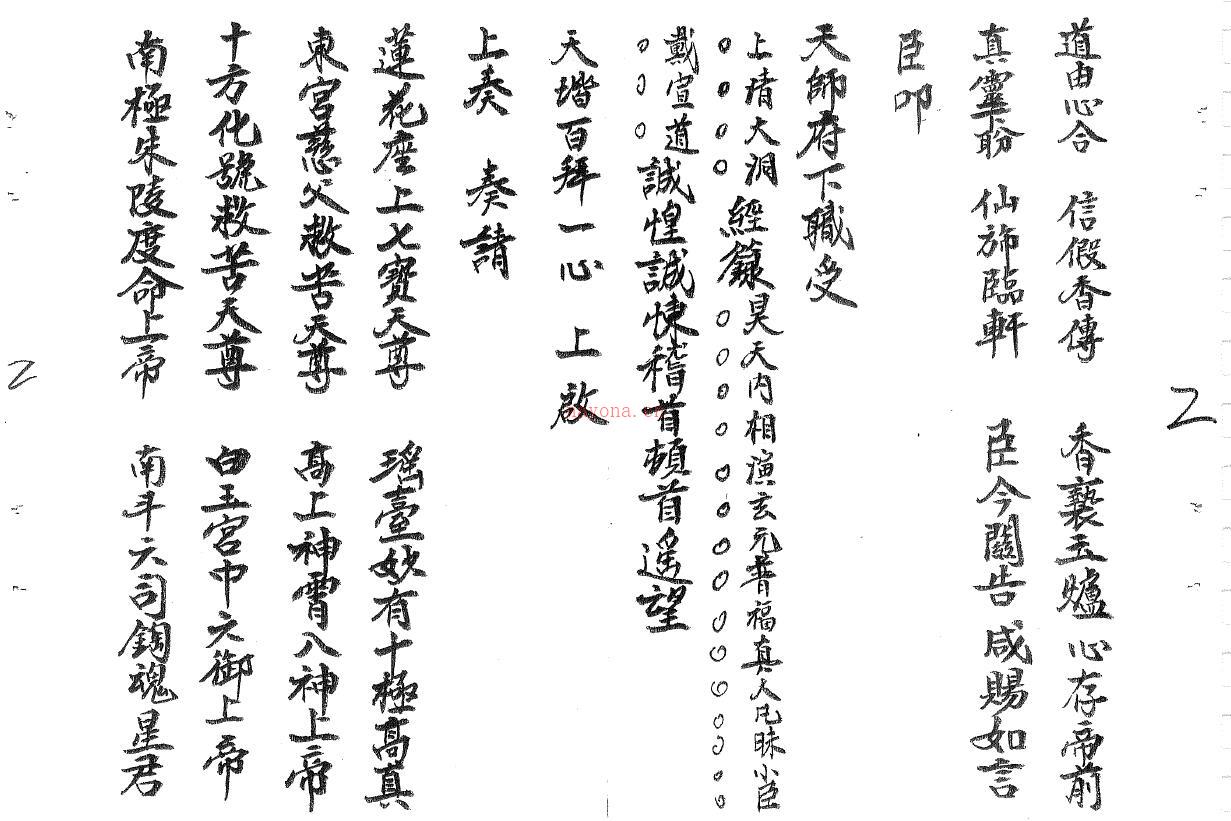 2
道由心合 信假香傳 香爇玉爐 心存帝前
真靈盼 仙斾臨軒 臣今關告 咸賜如言
臣叩
天師府下職受
上清大洞經籙昊天內相演玄元普福真人凡昧小臣
○○○○○○○○○○○○○○○○○○○
戴宣道誠惶誠悚稽首頓首遥望
○○○
天堦百拜一心 上啟
上奏 奏請
蓮花座上七寶天尊 瑤臺妙有十極高真
東宮慈父救苦天尊 高上神霄八神上帝
十方化號救苦天尊 白玉宮中六御上帝
南極朱陵度命上帝 南斗六司鈎魂星君
2